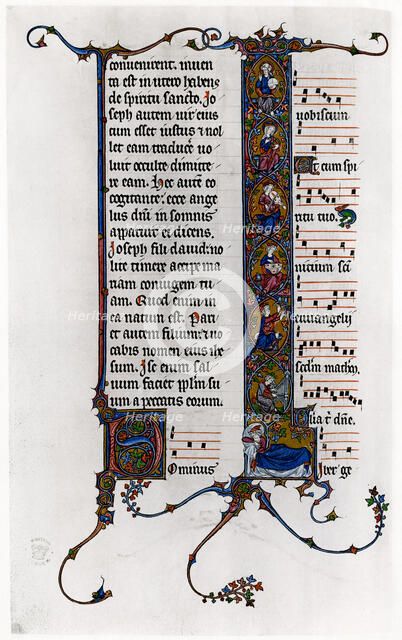 convenirent. inven
ta est in utero habens
de spiritu sancto. Jo
seph autem vir eius
cum esset iustus ⁊ nol
let eam traduce vo
luit occulte dimitte
re eam. Hec aut̄ eo
cogitante: ecce ange
lus dn̄i in somnis
apparuit ei dicens.
Joseph fili david: no
li timere accipe ma
riam coniugem tu
am. Quod enim in
ea natum est. Pari
et autem filium: ⁊ vo
cabis nomen eius ihe
sum. Ipse enim sal
vum faciet pplm̄ su
um a peccatis eorum.
Dominus
vobiscum
Et cum spi
ritu tuo.
Inicium sc̄i
evuangelij
scd̄m mathm̄
Glia t̄ dn̄e.
Liber ge
Heritage